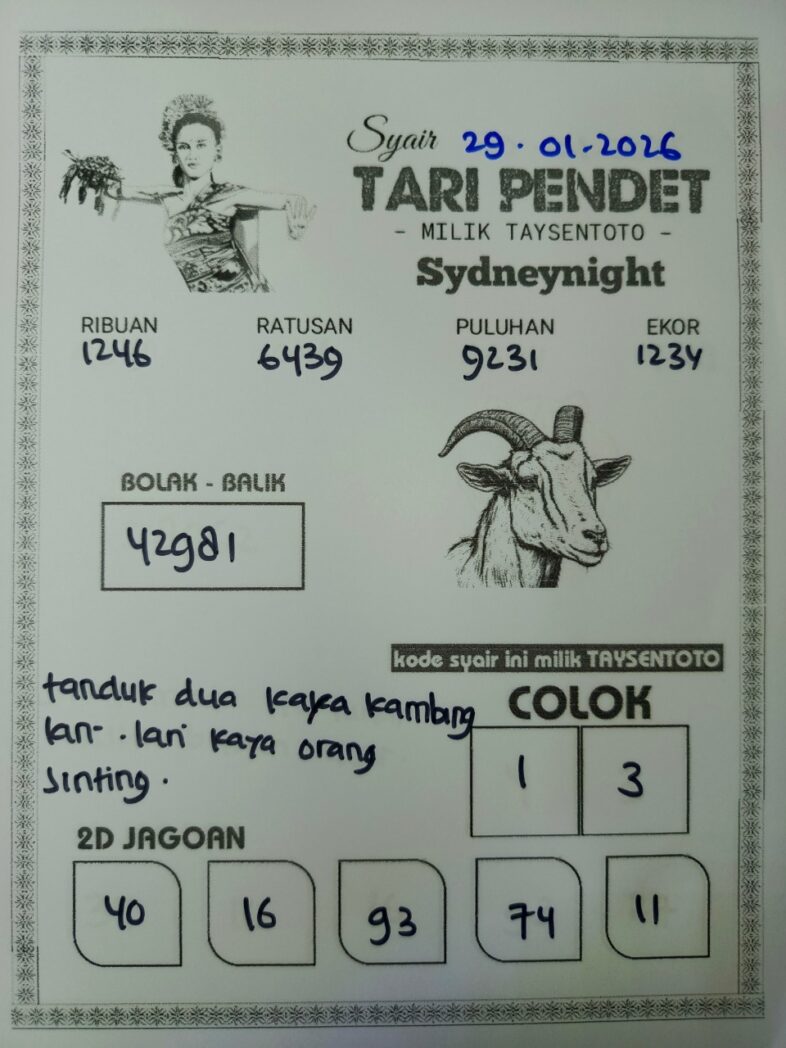 Syair 29.01.2026
TARI PENDET
- MILIK TAYSENTOTO -
Sydneynight
RIBUAN RATUSAN PULUHAN EKOR
1246 6439 9231 1234
BOLAK - BALIK
42981
kode syair ini milik TAYSENTOTO
tanduk dua kaya kambing
lari - lari kaya orang
sinting.
COLOK
1 3
2D JAGOAN
40 16 93 74 11